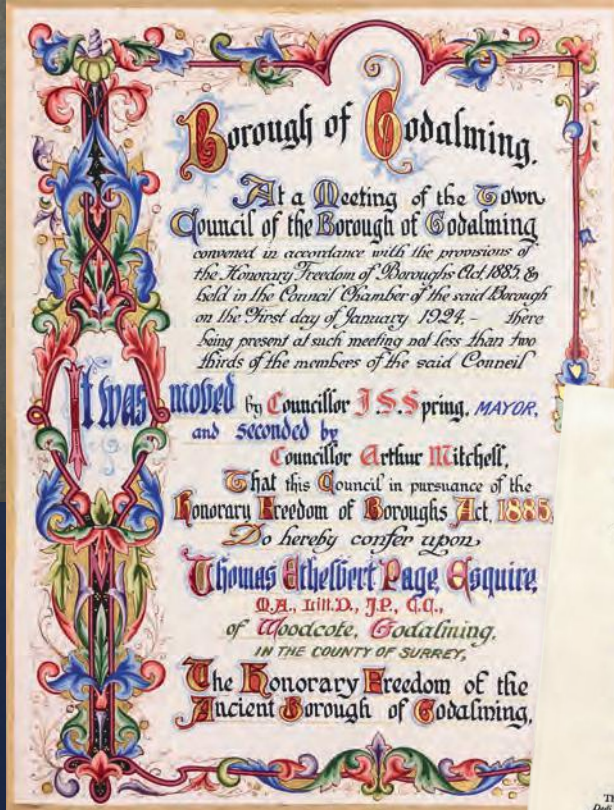 Borough of Godalming.
At a Meeting of the Town
Council of the Borough of Godalming
convened in accordance with the provisions of
the Honorary Freedom of Boroughs Act 1885, &
held in the Council Chamber of the said Borough
on the First day of January 1924, – there
being present at such meeting not less than two
thirds of the members of the said Council
It was moved by Councillor J.S.Spring, MAYOR,
and seconded by
Councillor Arthur Mitchell,
That this Council in pursuance of the
Honorary Freedom of Boroughs Act, 1885,
Do hereby confer upon
Thomas Ethelbert Page, Esquire,
M.A., Litt.D., J.P., C.C.,
of Woodcote, Godalming,
IN THE COUNTY OF SURREY,
The Honorary Freedom of the
Ancient Borough of Godalming,